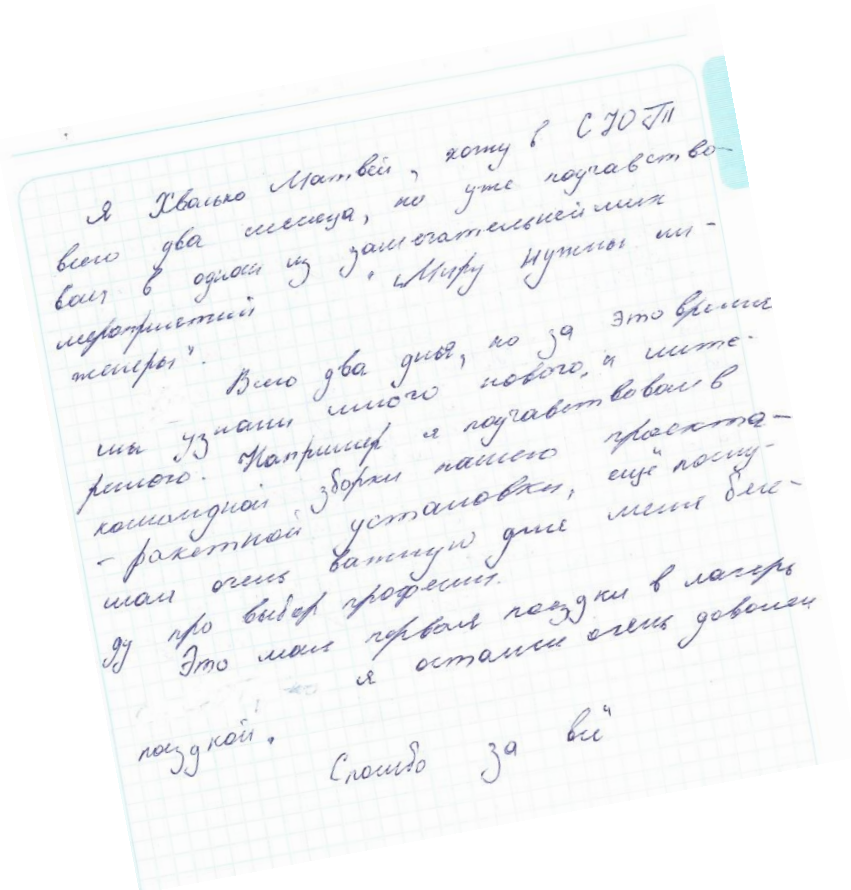 Я Хвалько Матвей, хожу в СЮТ
всего два месяца, но уже поучавство-
вал в одном из замечательнейших
мероприятий "Миру нужны ин-
женеры".
Всего два дня, но за это время
мы узнали много нового, и инте-
ресного. Например я поучавствовал в
командной зборки нашего проекта-
- ракетной установки, ещё послу-
шал очень важную для меня бесе-
ду про выбор професии.
Это моя первая поездка в лагерь
я остался очень доволен
поездкой.
Спасибо за всё